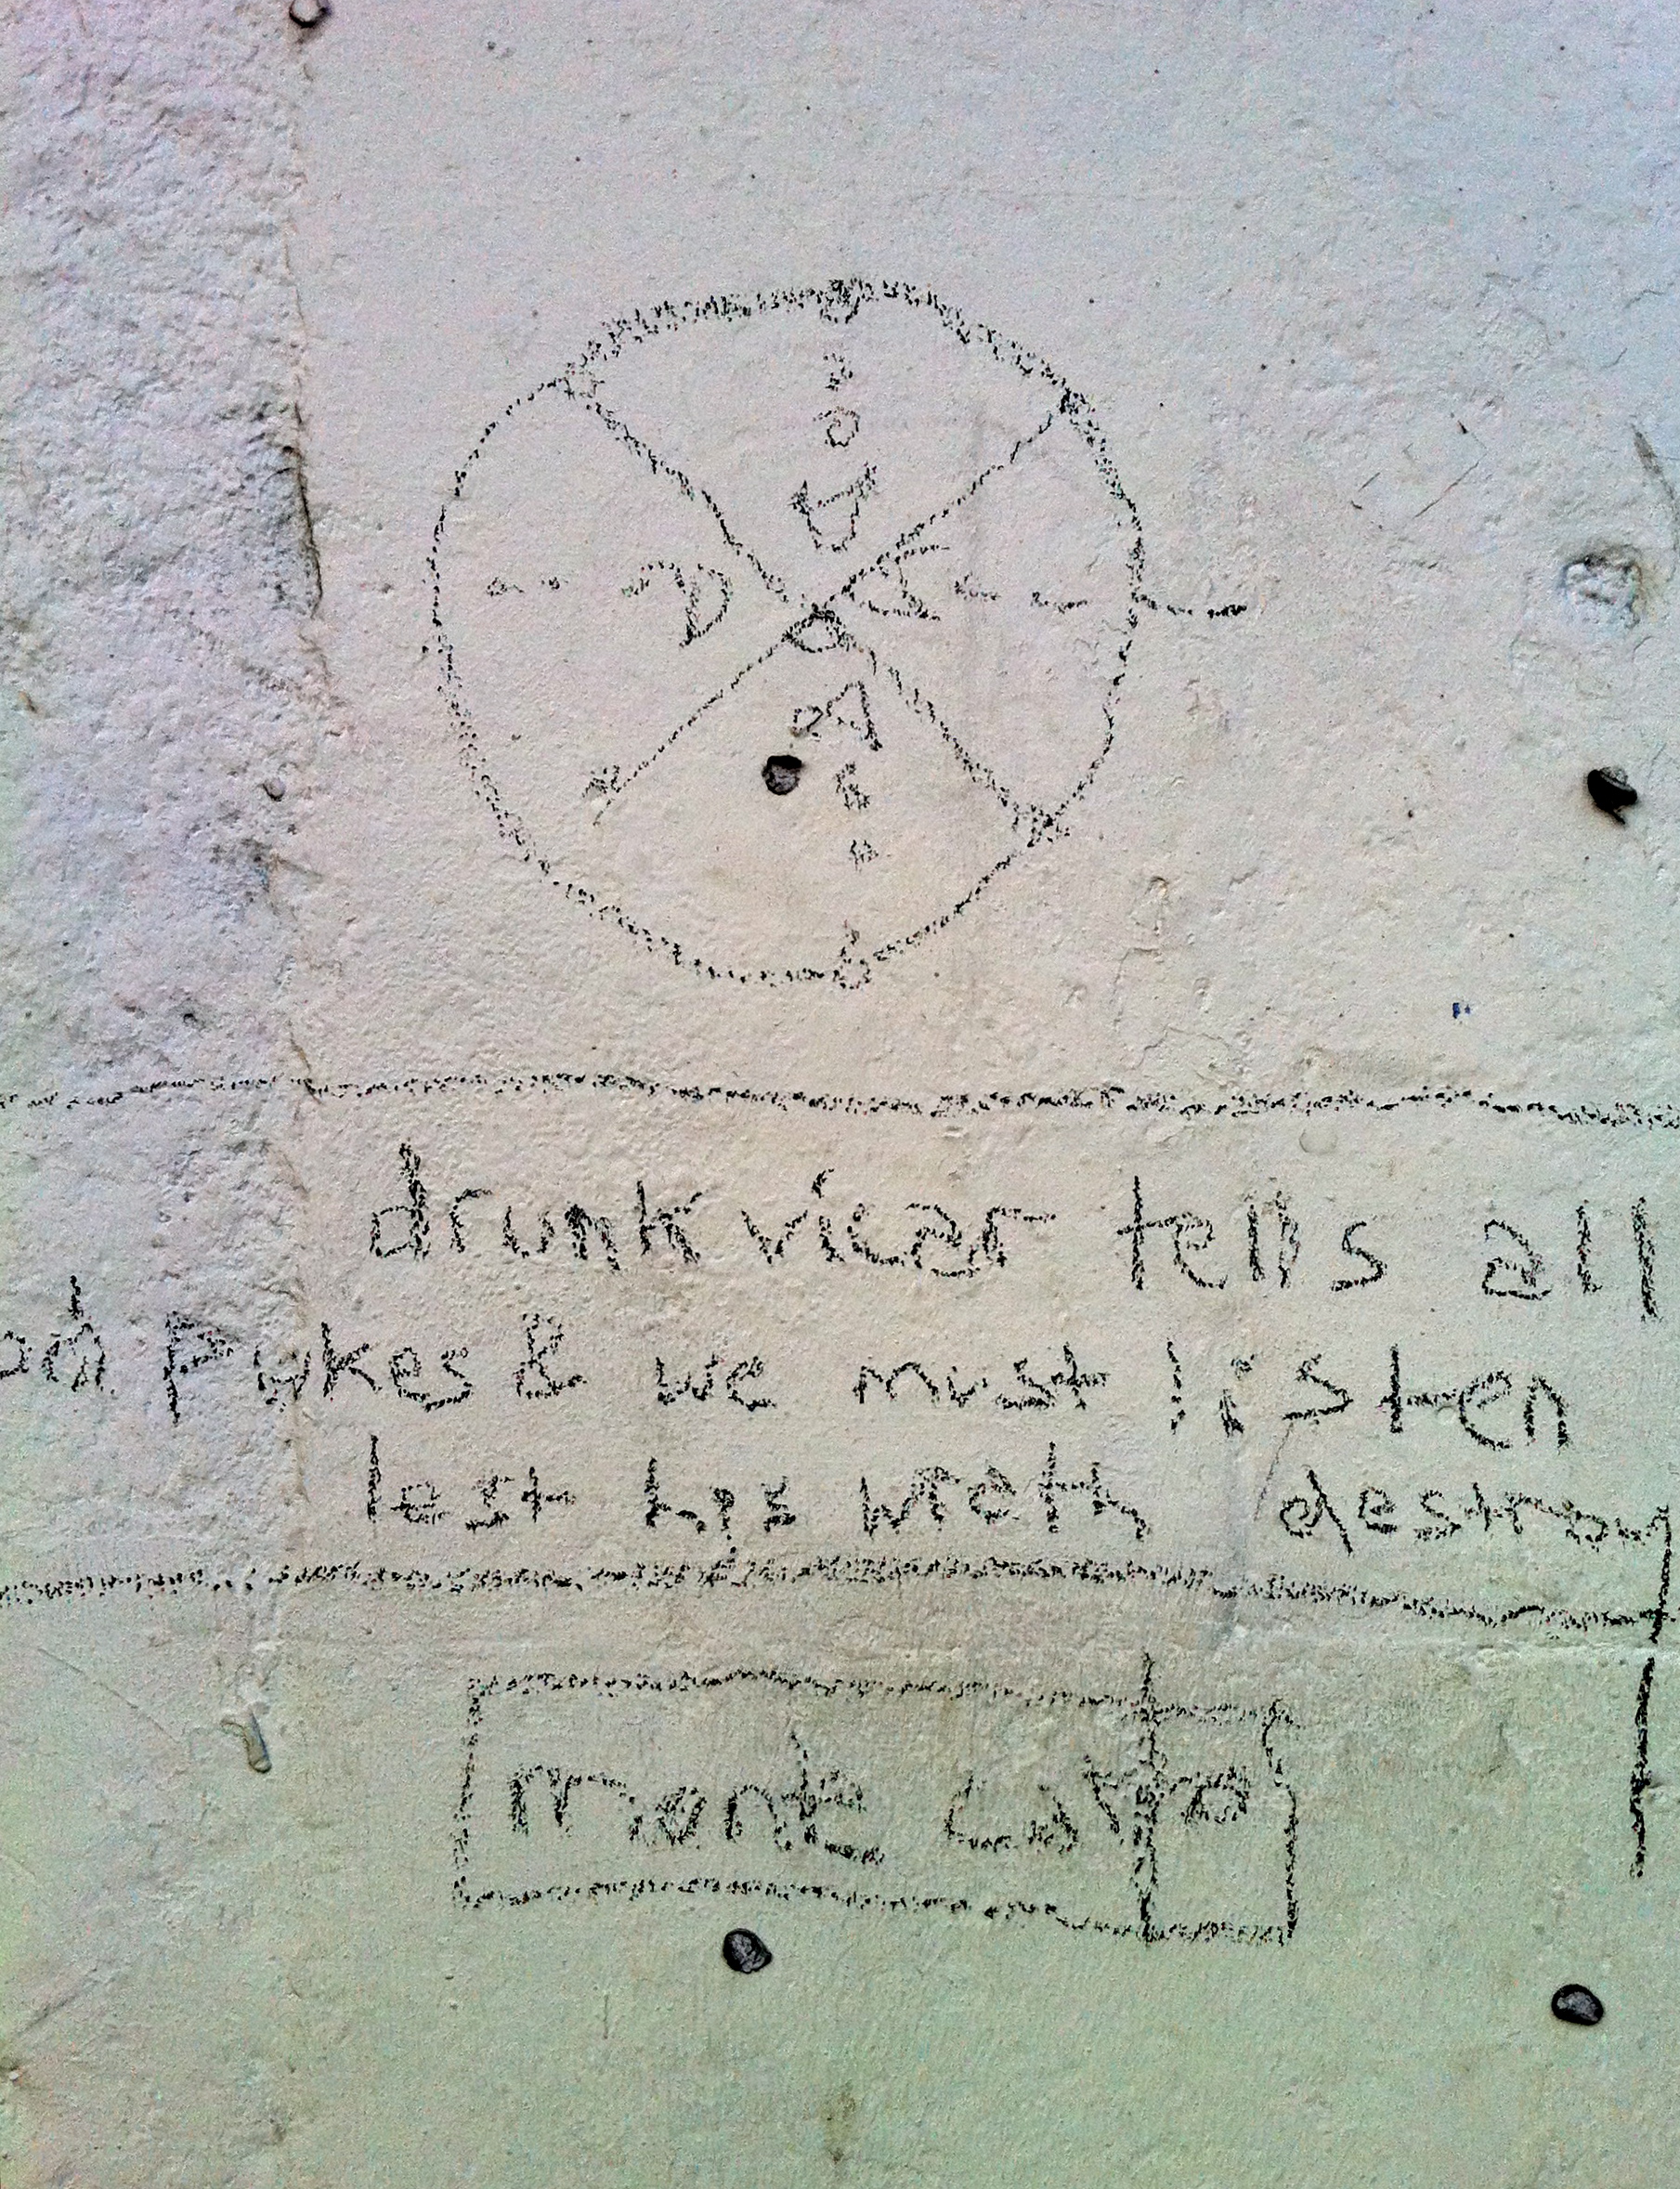 drunk vicar tells all
Pykes & we must listen
lest his wreth destroy
monte